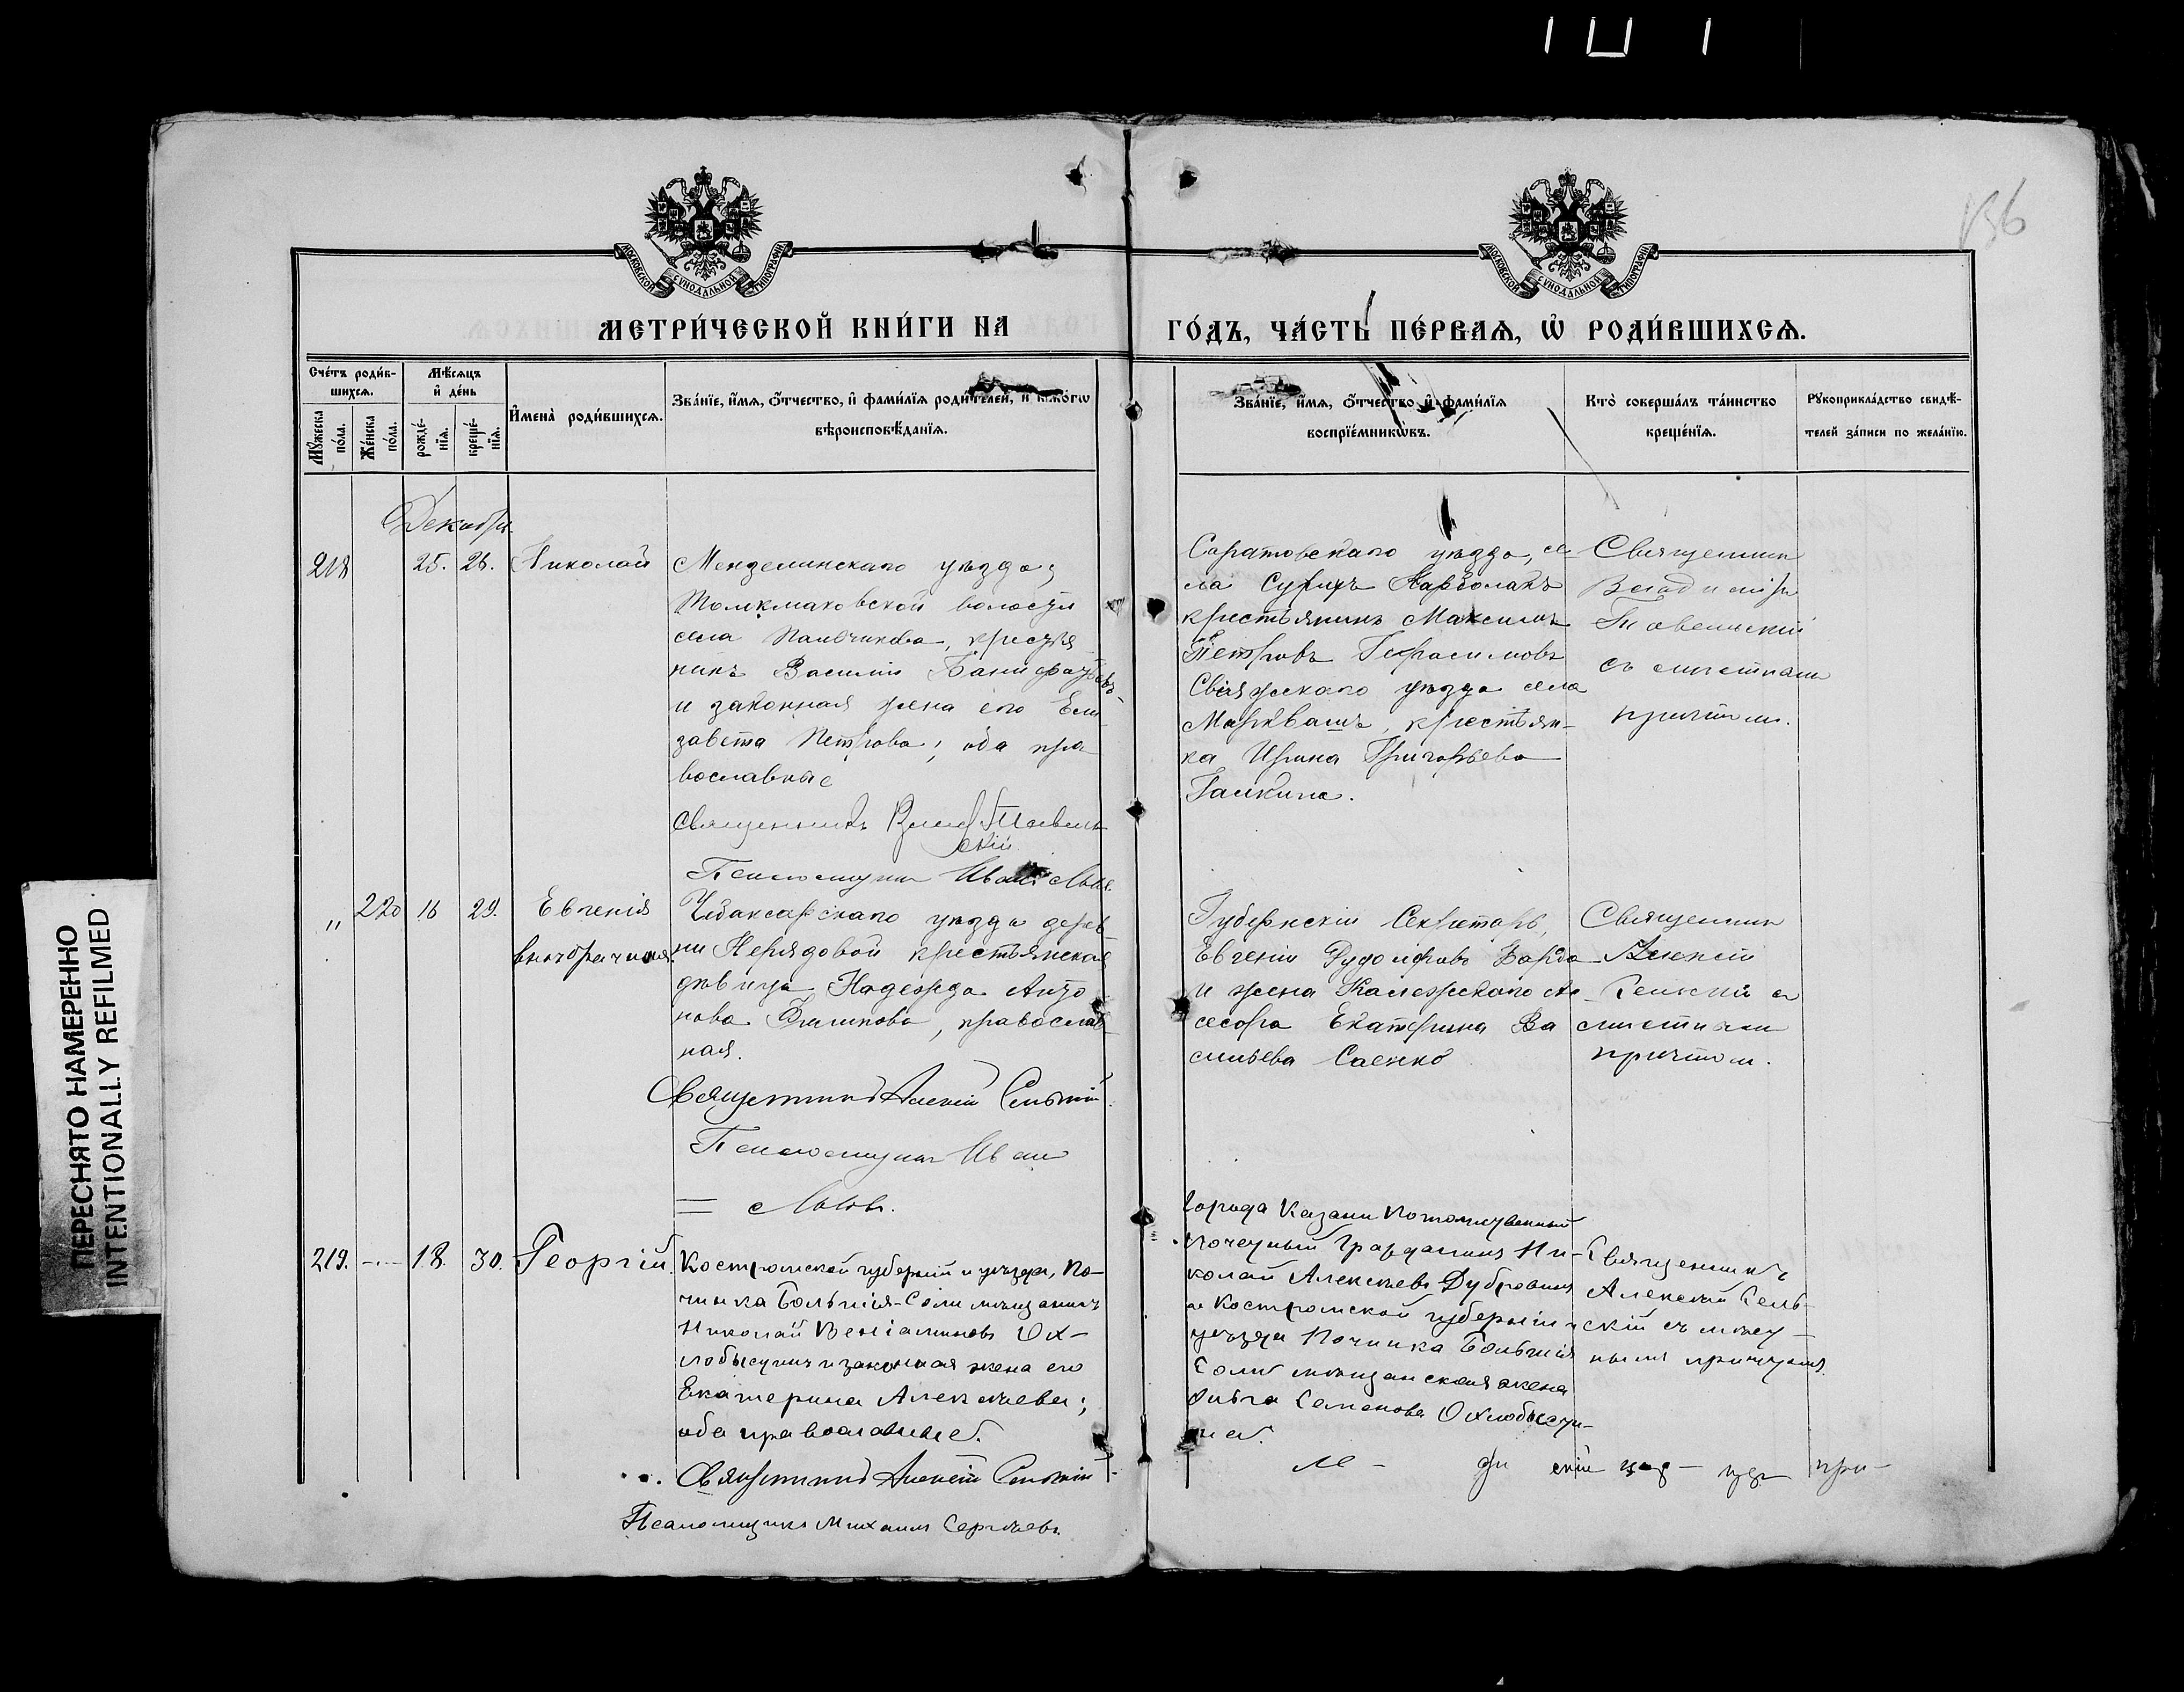 156
МОСКОВСКОЙ СУНОДАЛЬНОЙ ТИПОГРАФІИ
МОСКОВСКОЙ СУНОДАЛЬНОЙ ТИПОГРАФІИ
МЕТРИ́ЧЕСКОЙ КНИ́ГИ НА ГО́ДЪ, ЧА́СТЬ ПЕ́РВАѦ, Ѡ РОДИ́ВШИХСѦ.
Сче́тъ роди́в-
шихсѧ.
Мꙋ́жеска по́ла.
Же́нска по́ла.
Мѣ́сѧцъ
и҆ де́нь
рожде́-нїѧ.
креще́-нїѧ.
И҆мена̀ роди́вшихсѧ.
Зва́нїе, и҆́мѧ, ѻ҆́тчество, и҆ фами́лїѧ роди́телей, и҆ како́гѡ
вѣроисповѣ́данїѧ.
Зва́нїе, и҆́мѧ, ѻ҆́тчество и҆ фами́лїѧ
воспрїе́мникѡвъ.
Кто̀ соверша́лъ та́инство
креще́нїѧ.
Рꙋкоприкла́дство свидѣ́-
телей за́писи по жела́нїю.
Декабрь
218 25. 26. Николай
Мензелинскаго уѣзда,
волости
села крестья
нинъ Василій
и законная жена его Ели
завета Петрова; оба пра
вославные
Священникъ
скій
Псаломщикъ Иванъ
Саратовскаго уѣзда, се
ла Карбулакъ
крестьянинъ Максимъ
Петровъ Герасимовъ
Свіяжскаго уѣзда села
Маркваши, крестьян-
ка Ирина Григорьева
Галкина.
Священник
Владимір
съ мѣстным
причтом.
„ 220 16 29. Евгенія
внѣбрачная
Чебоксарскаго уѣзда дерев
ни Нерядовой крестьянская
дѣвица Надежда Анто
нова Филипова, православ
ная.
Священникъ Алексій Сельскій.
Псаломщикъ Иван
Губернскій Секретарь,
Евгеній Рудольфовъ
и жена Коллежскаго Ас
сесора Екатерина Ва
сильева Саенко
Священник
Алексій
Сельскій с
мѣстным
причтом.
219. 18. 30. Георгій
Костромской губерніи и уѣзда, По-
чинка Большія-Соли мѣщанинъ
Николай Веніаминовъ Ох-
лобыстинъ и законная жена его
Екатерина Алексѣева;
оба православные.
Священникъ Алексій Сельскій
Псаломщикъ Михаилъ Сергѣевъ.
Города Казани Потомственный
почетный Гражданинъ Ни-
колай Алексѣевъ Дубровинъ
и Костромской губерніи и
уѣзда Починка Большія
Соли мѣщанская жена
Ольга Семенова Охлобысти-
на.
Священникъ
Алексій Сель-
скій съ мѣст-
нымъ причтомъ.
ПЕРЕСНЯТО НАМЕРЕННО
INTENTIONALLY REFILMED